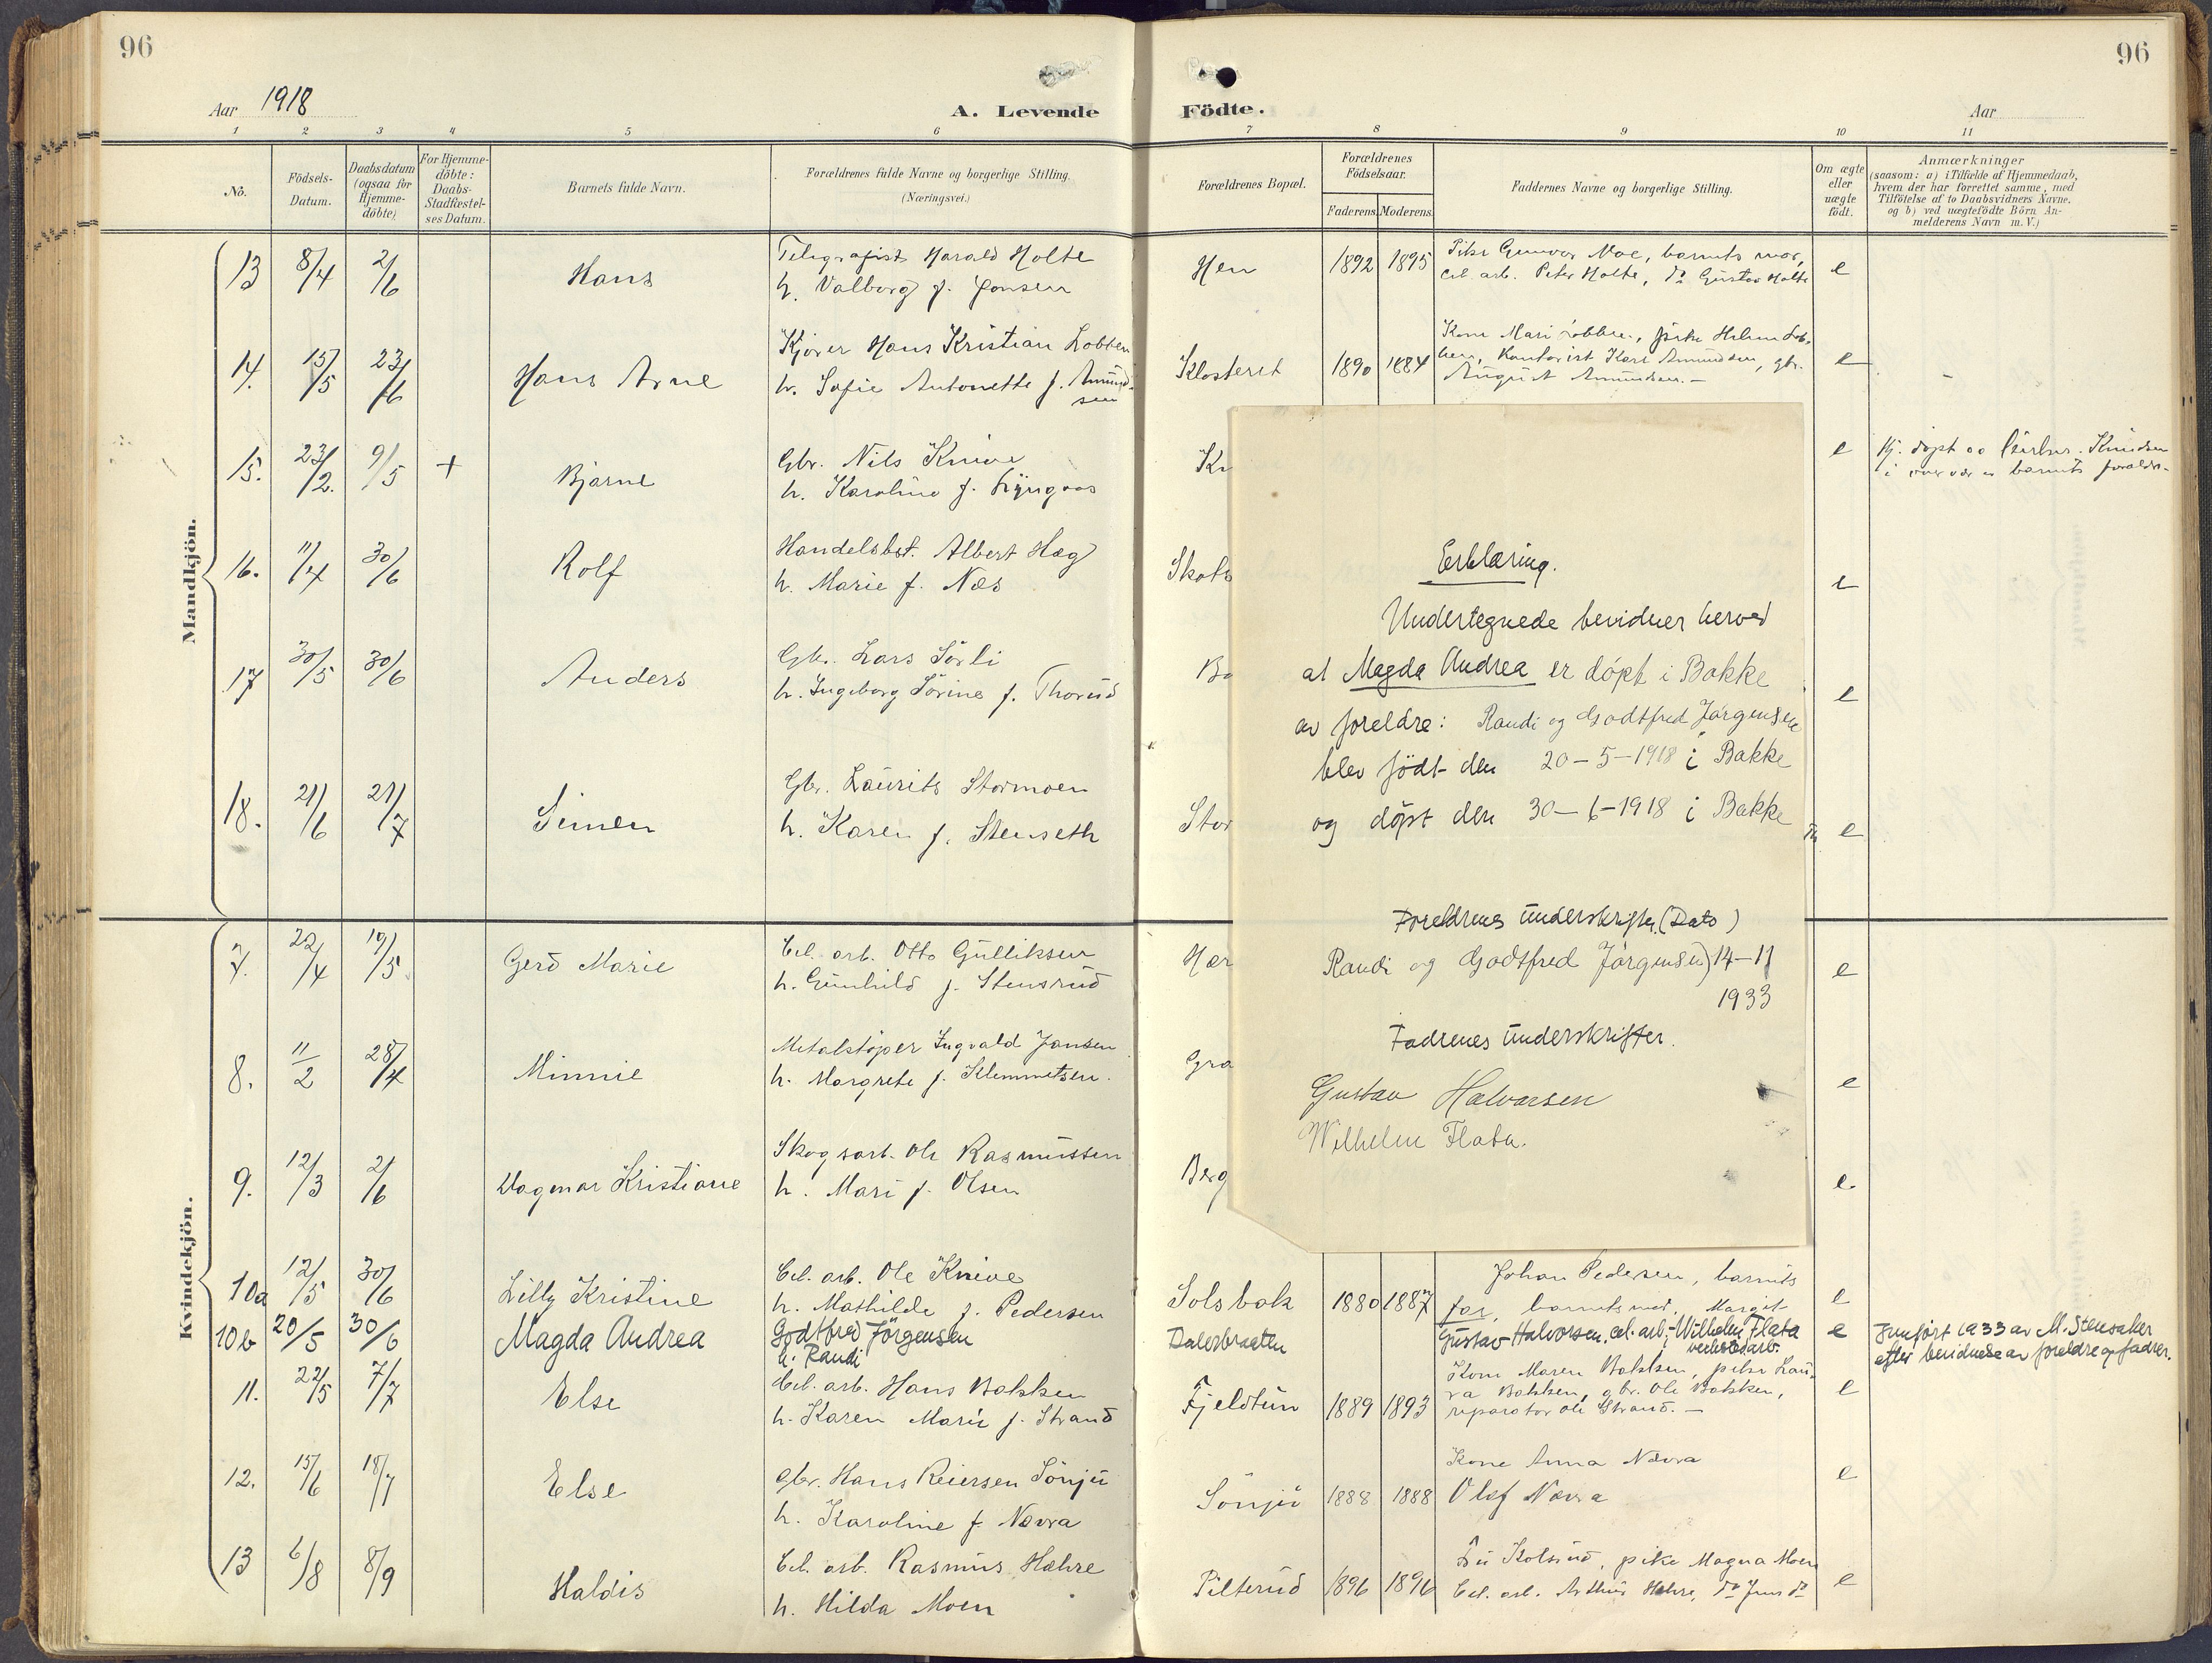 96
96
Aar 1918
A. Levende Födte.
Aar
1 2 3 4 5 6 7 8 9 10 11
No.
Födsels-
Datum.
Daabsdatum
(ogsaa for
Hjemme-
döbte)
For Hjemme-
döbte:
Daabs-
Stadfæstel-
ses Datum.
Barnets fulde Navn.
Forældrenes fulde Navne og borgerlige Stilling.
(Næringsvei.)
Forældrenes Bopæl.
Forældrenes
Födselsaar.
Faderens. Moderens.
Faddernes Navne og borgerlige Stilling.
Om ægte
eller
uægte
födt.
Anmærkninger
(saasom: a) i Tilfælde af Hjemmedaab,
hvem der har forrettet samme, med
Tilföielse af to Daabsvidners Navne.
og b) ved uægtefödte Börn An-
melderens Navn m. V.)
Mandkjön.
13 8/4 2/6 Hans
Telegrafist Harald Holte
h. Valborg f. Jonsen
Hen 1892 1895
Pike Gunvor Moe, barnets mor,
cel. arb. Peter Holte, do Gustav Holte
e
14. 15/5 23/6 Hans Arne
Kjører Hans Kristian Lobben
h. Sofie Antonette f. Amund-
sen
Klosteret 1890 1884
Kone Mari Lobben, pike Helene Lob-
ben, Kontorist Karl Amundsen, gbr.
August Amundsen. —
e
15. 23/2. 9/5 + Bjarne
Gbr. Nils Knive
h. Karoline f. Lyngaas
Kn
e
Hj. døpt
barnets foreldr.
16. 11/4 30/6 Rolf
Handelsbet. Albert Hag
h. Marie f. Næs
Skots
e
17 30/5 30/6 Anders
Gbr. Lars Sörli
h. Ingeborg Sörine f. Thorud
Ba
e
18. 21/6 21/7 Simen
Gbr. Laurits Stormoen
h. Karen f. Stenseth
Stor
e
Erklæring.
Undertegnede bevidner herved
at Magda Andrea er döpt i Bakke
av foreldre: Randi og Godtfred Jörgensen
blev födt den 20-5-1918 i Bakke
og döpt den 30-6-1918 i Bakke
Foreldrenes underskrifter (Dato)
Randi og Godtfred Jörgensen 14-11
1933
Fadrenes underskrifter.
Gustav Halvorsen
Wilhelm Flata.
Kvindekjön.
7. 22/4 19/5 Gerd Marie
Cel. arb. Otto Gulliksen
h. Gunhild f. Stensrud
Hær
e
8. 11/2 28/4 Minnie
Metalstøper Ingvald Jansen
h. Margrete f. Klemmetsen.
Gra
e
9. 12/3 2/6 Dagmar Kristiane
Skogsarb. Ole Rasmussen
h. Mari f. Olsen
Berg
e.
10a 12/5 30/6 Lilly Kristine
Cel. arb. Ole Knive
h. Mathilde f. Pedersen
Solsbak 1880 1887
Johan Pedersen, barnets
far, barnets mor, Margit
e
10b 20/5 30/6 Magda Andrea
Godtfred Jörgensen
h. Randi
Dalesbraaten
Gustav Halvorsen, cel. arb, - Wilhelm Flata
verkstedarb.
e
Innført 1933 av M. Stensaker
efter bevidnelse av foreldre og fadrer.
11. 22/5 7/7 Else
Cel. arb. Hans Bakken
h. Karen Marie f. Strand
Fjeldtun 1889 1893
Kone Maren Bakken, pike Lau-
ra Bakken, gbr. Ole Bakken,
reparatør Ole Strand. —
e
12. 15/6 18/7 Else
Gbr. Hans Reiersen Sönju
h. Karoline f. Nævra
Sönju 1888 1888
Kone Anna Nævra
Olaf Nævra
e
13 6/8 8/9 Haldis
Cel. arb. Rasmus Hæhre
h. Hilda Moen
Pilterud 1896 1896
Fru Kolsrud, pike Magna Moen
Cel. arb. Arthur Hæhre, do Jens do
e